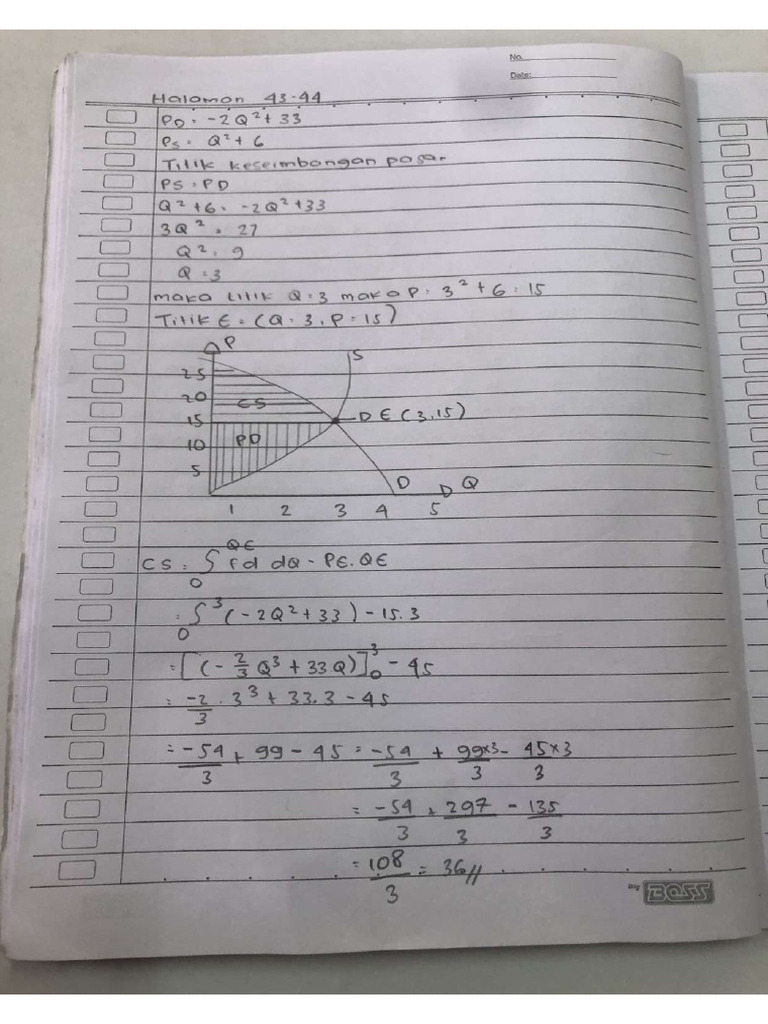 No.
Date:
Halaman 43-44
PD = -2Q² + 33
Ps = Q² + 6
Titik keseimbangan pasar
PS = PD
Q² + 6 = -2Q² + 33
3Q² = 27
Q² = 9
Q = 3
maka titik Q = 3 maka P = 3² + 6 = 15
Titik E = (Q = 3, P = 15)
P
S
25
20
CS
15
E (3,15)
PD
10
5
D
Q
1 2 3 4 5
CS = ∫₀^QE fd dQ - PE.QE
= ∫₀³ (-2Q² + 33) - 15.3
= [(-2/3 Q³ + 33Q)]₀³ - 45
= -2/3 . 3³ + 33.3 - 45
= -54/3 + 99 - 45 = -54/3 + 99×3/3 - 45×3/3
= -54/3 + 297/3 - 135/3
= 108/3 = 36//
BIG BOSS